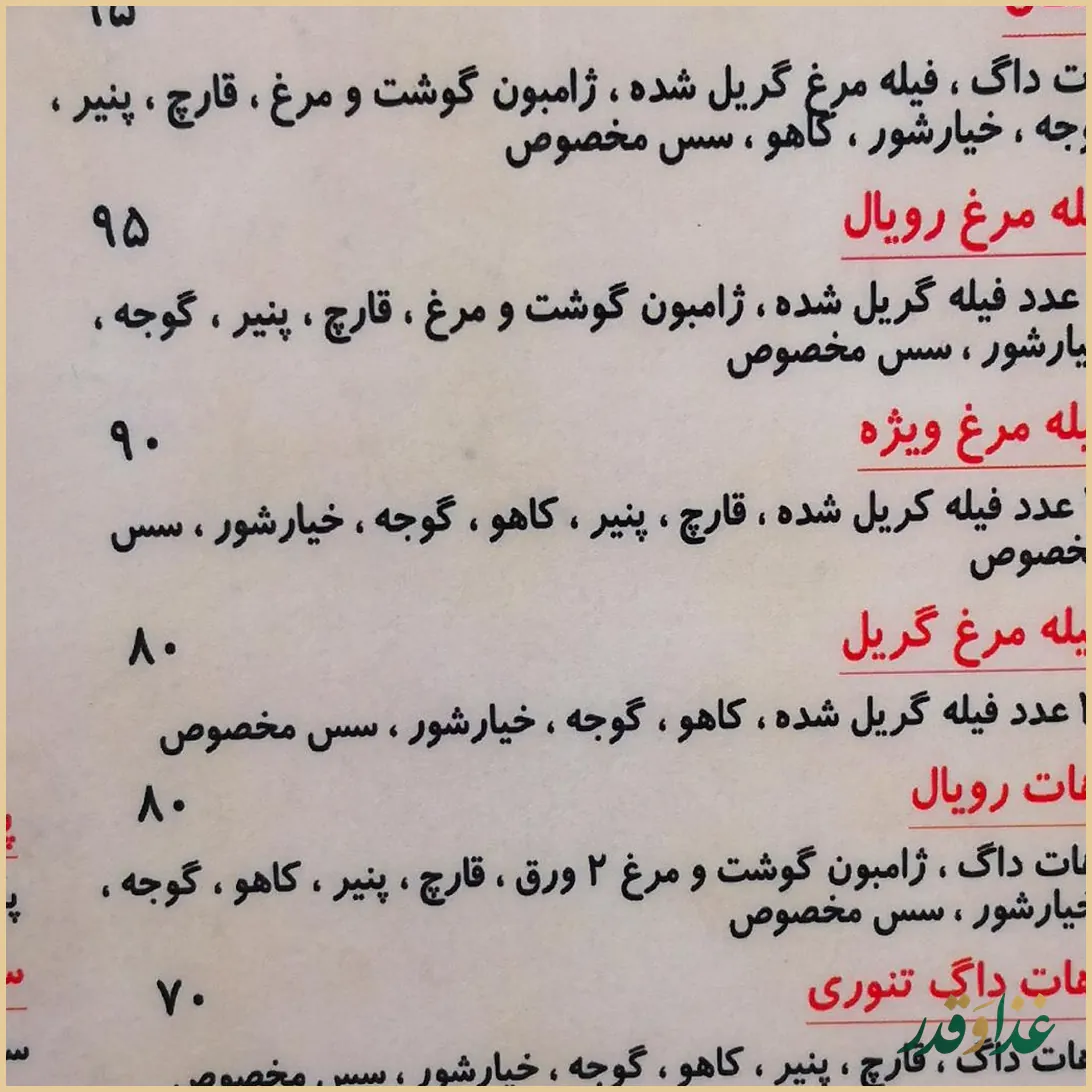 داگ ، فیله مرغ گریل شده ، ژامبون گوشت و مرغ ، قارچ ، پنیر ،
خیارشور ، کاهو ، سس مخصوص
مرغ رویال
۹۵
عدد فیله گریل شده ، ژامبون گوشت و مرغ ، قارچ ، پنیر ، گوجه ،
، سس مخصوص
مرغ ویژه
۹۰
عدد فیله کریل شده ، قارچ ، پنیر ، کاهو ، گوجه ، خیارشور ، سس
مرغ گریل
۸۰
عدد فیله گریل شده ، کاهو ، گوجه ، خیارشور ، سس مخصوص
رویال
۸۰
داگ ، ژامبون گوشت و مرغ ۲ ورق ، قارچ ، پنیر ، کاهو ، گوجه ،
خیارشور ، سس مخصوص
هات داگ تنوری
۷۰
داگ ، قارچ ، پنیر ، کاهو ، گوجه ، خیارشور ، سس مخصوص
غذا و قدر